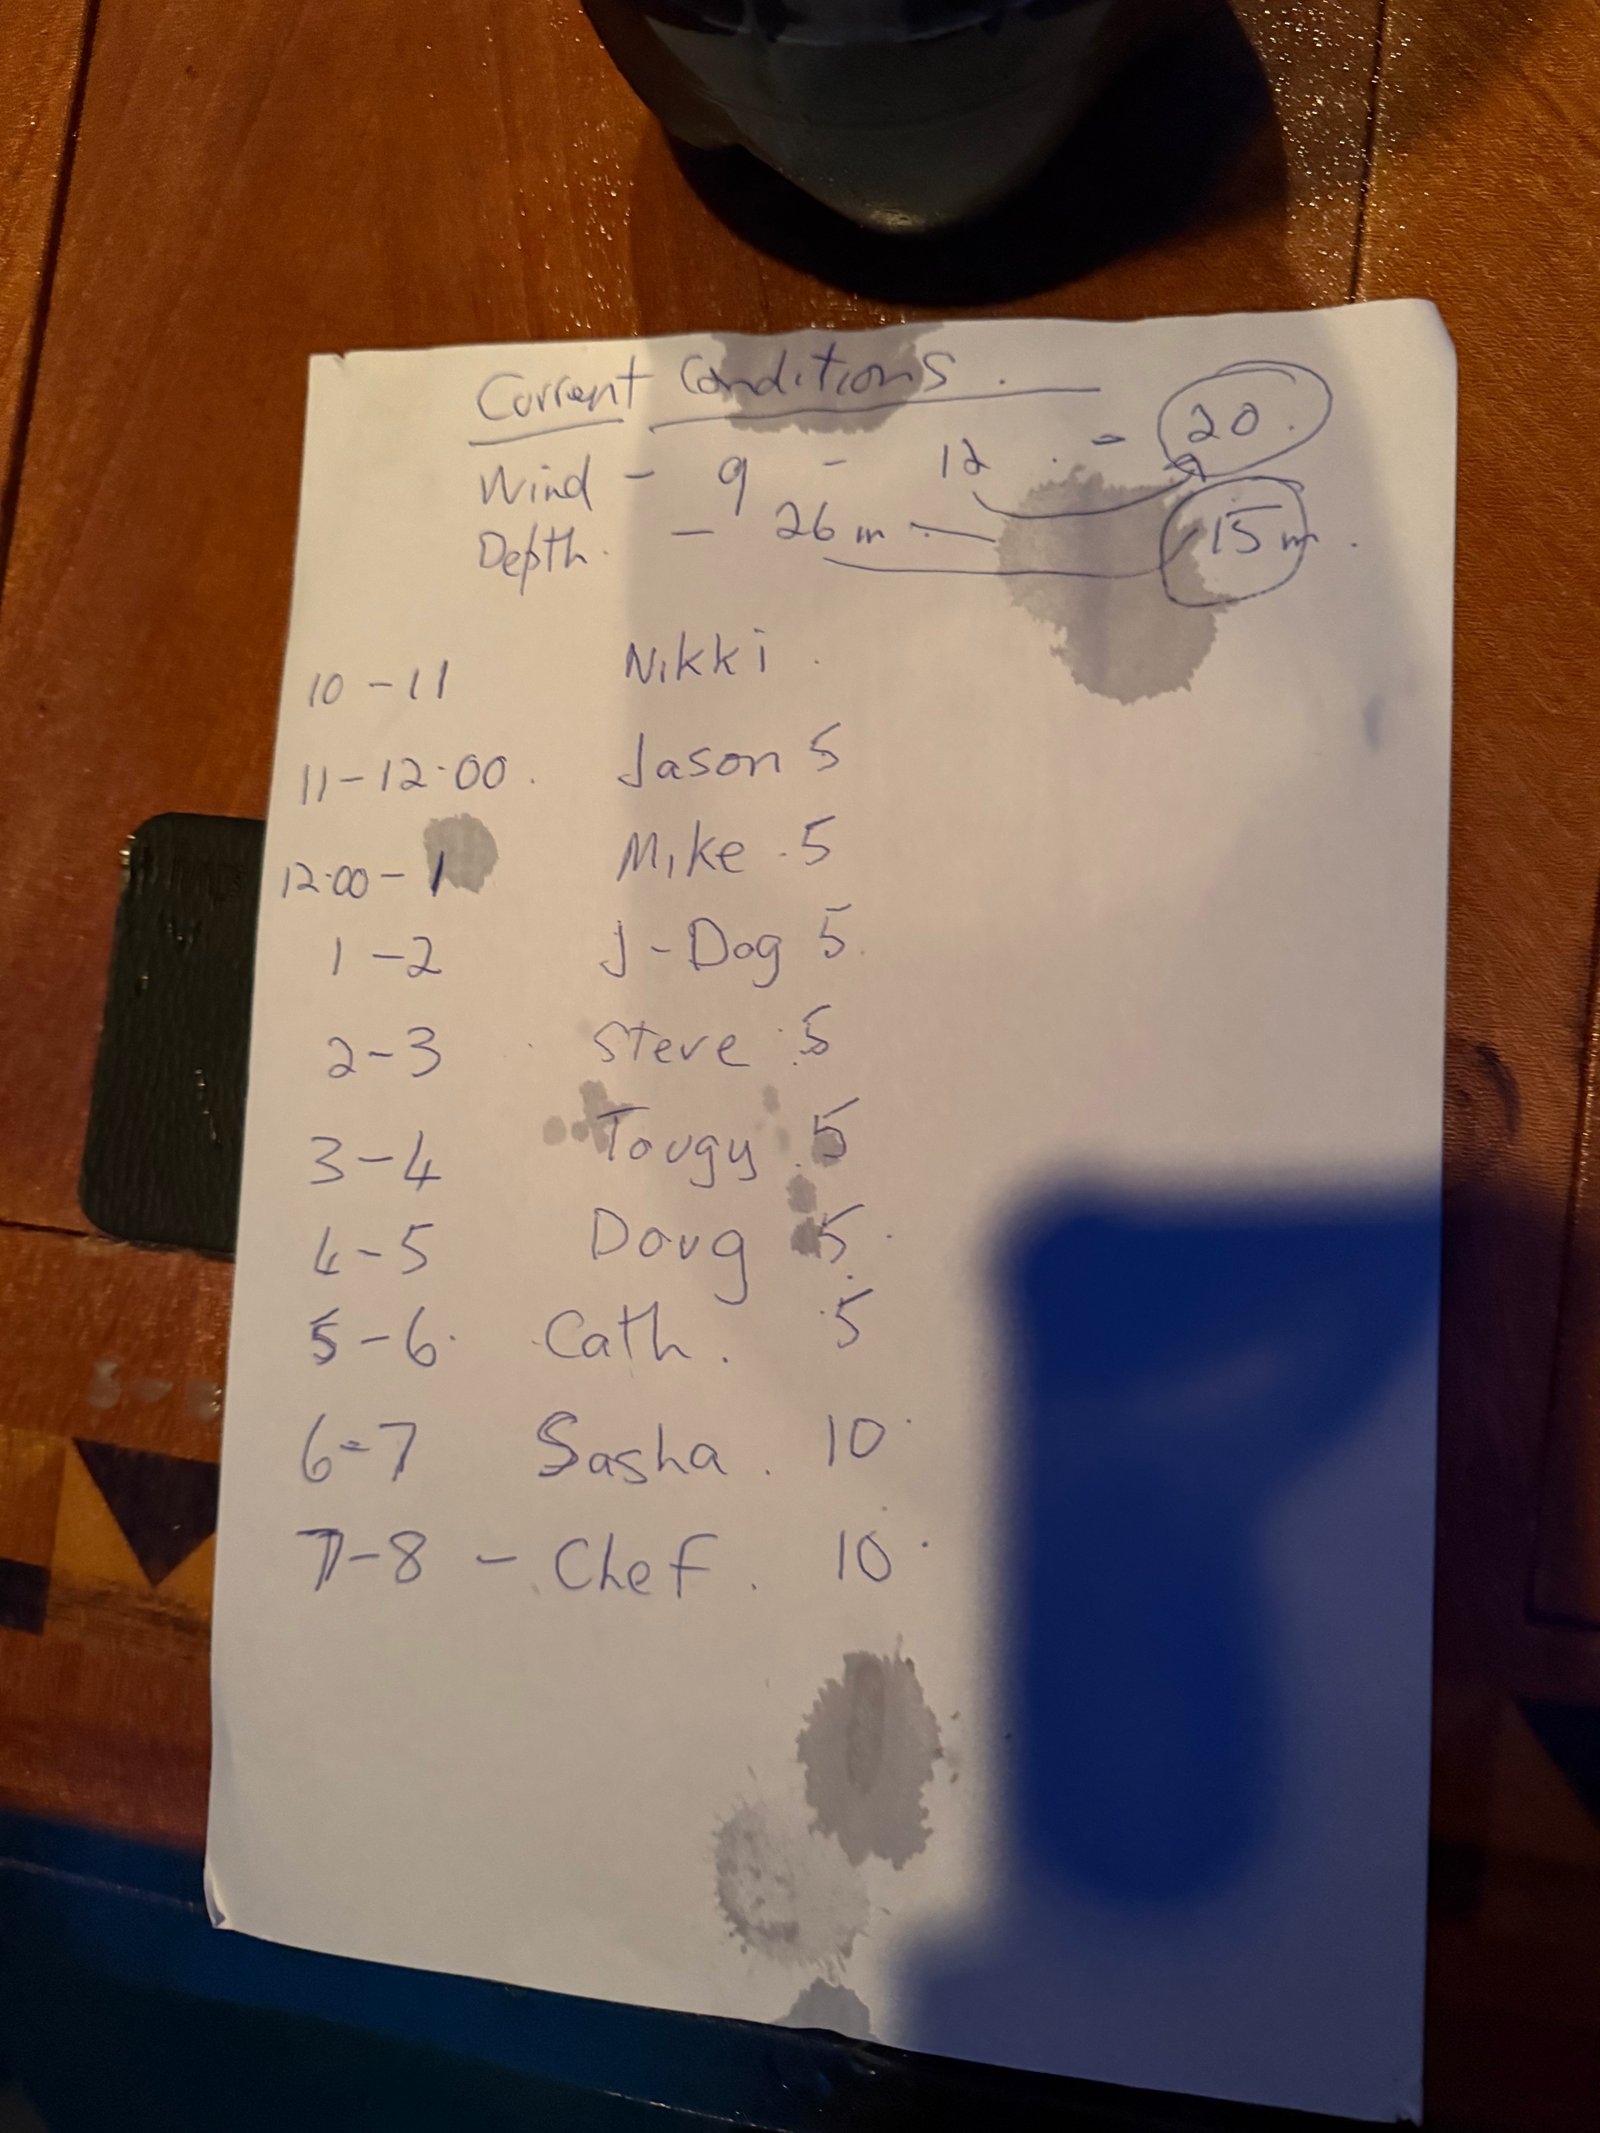 Current Conditions.
Wind - 9 - 12 . - 20.
Depth. - 26m - 15m.
10-11 Nikki.
11-12.00. Jason 5
12.00-1 Mike .5
1-2 J-Dog 5.
2-3 Steve .5
3-4 Tougy .5
4-5 Doug 5.
5-6. Cath. .5
6-7 Sasha. 10.
7-8 - Chef. 10.